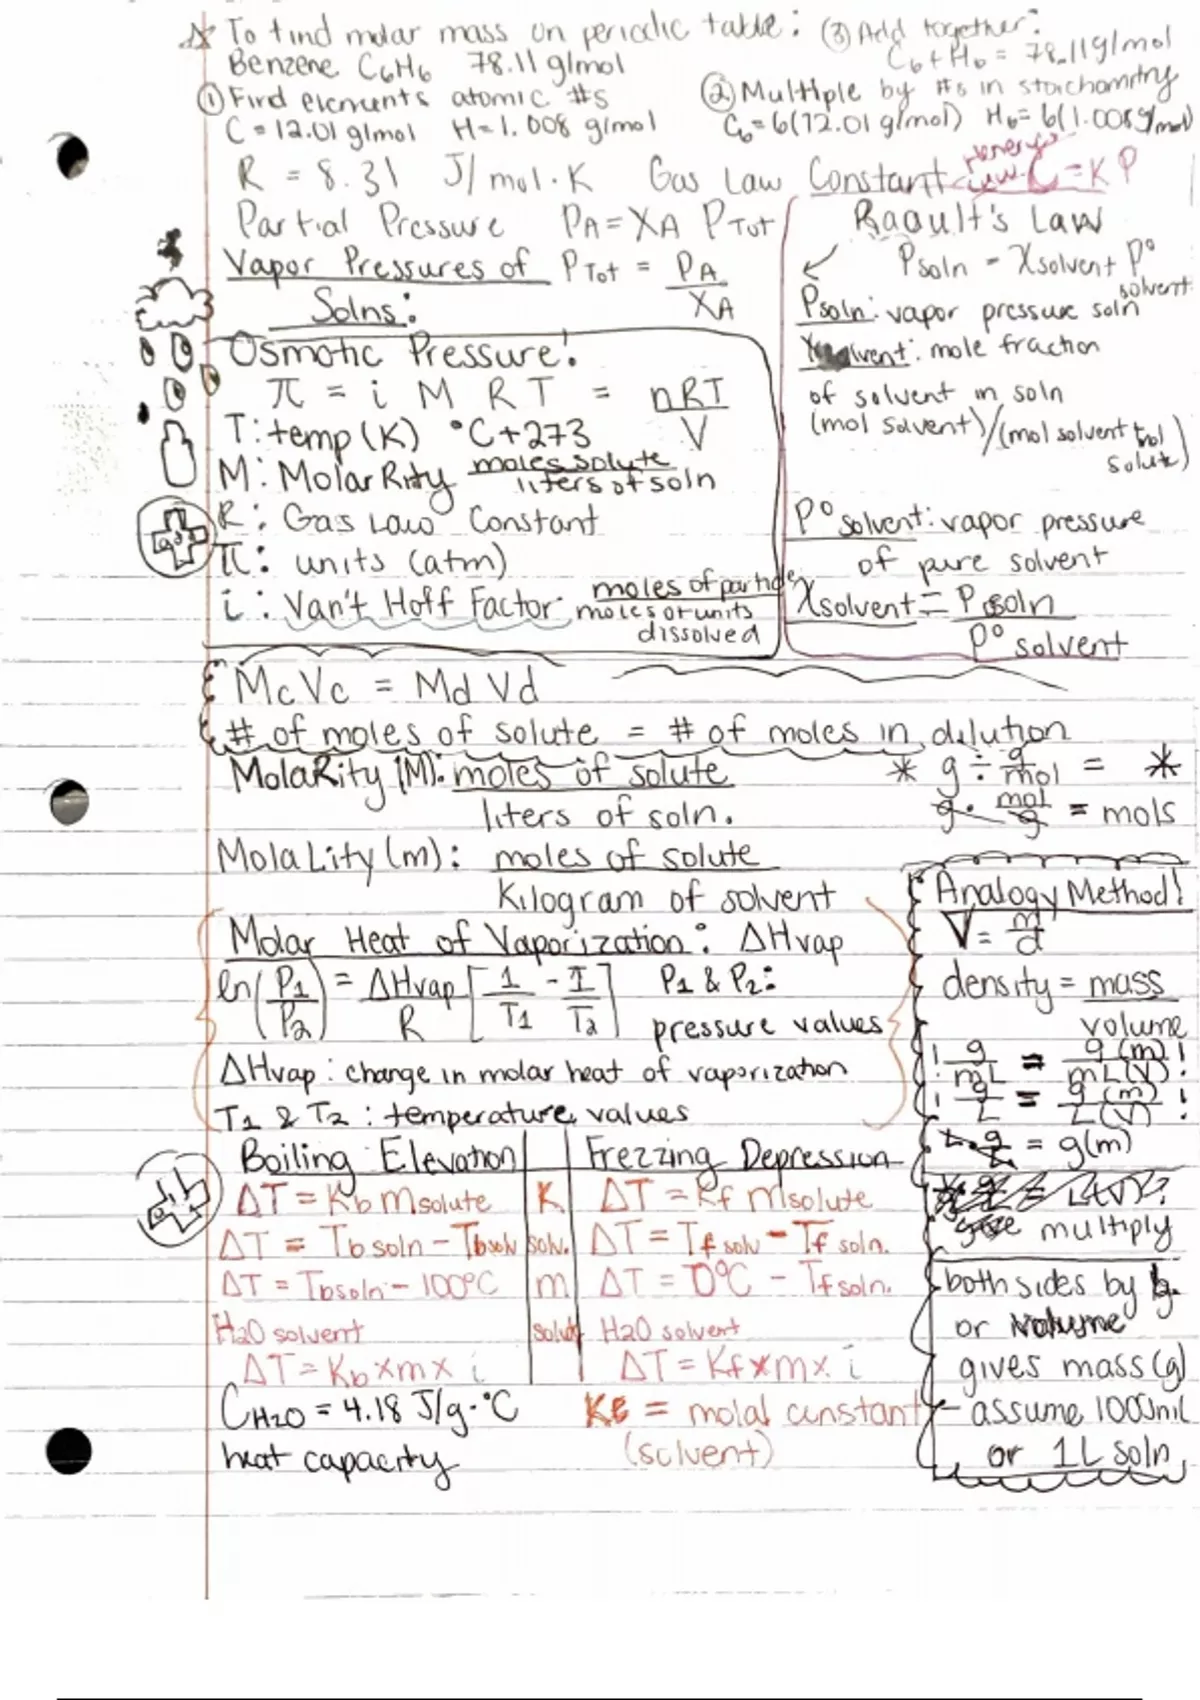 To find molar mass on periodic table: ③ Add together:
Benzene C6H6 78.11 g/mol C6+H6 = 78.11 g/mol
① Find elements atomic #s ② Multiple by #s in stoichomitry
C = 12.01 g/mol H = 1.008 g/mol C6 = 6(12.01 g/mol) H6 = 6(1.008 g/mol)
R = 8.31 J/mol·K Gas Law Constant C = KP
Partial Pressure PA = XA PTot
Vapor Pressures of PTot = PA
Solns: XA
Raoult's Law
Psoln = Xsolvent P°
solvent
Psoln: vapor pressure soln
Xsolvent: mole fraction
of solvent in soln
(mol solvent)/(mol solvent + mol
solute)
P° solvent: vapor pressure
of pure solvent
Xsolvent = Psoln
P° solvent
Osmotic Pressure:
π = i M R T = nRT
V
T: temp (K) °C+273
M: MolaRity moles solute
liters of soln
R: Gas Law Constant
π: units (atm)
i: Van't Hoff Factor: moles of particles
moles of units
dissolved
McVc = MdVd
# of moles of solute = # of moles in dilution
MolaRity (M): moles of solute
liters of soln.
* g ÷ g/mol = *
g · mol/g = mols
MolaLity (m): moles of solute
Kilogram of solvent
Molar Heat of Vaporization: ΔHvap
ln(P1/P2) = ΔHvap/R [1/T1 - 1/T2] P1 & P2:
pressure values
ΔHvap: change in molar heat of vaporization
T1 & T2: temperature values
Analogy Method!
V = m/d
density = mass
volume
! g/mL = g(m)/mL(V) !
! g/L = g(m)/L(V) !
L · g/L = g(m)
multiply
both sides by
or volume
gives mass (g)
- assume 1000mL
or 1L soln
Boiling Elevation Frezzing Depression
ΔT = Kb msolute K ΔT = Kf msolute
ΔT = Tb soln - Tb solv solv. ΔT = Tf solv - Tf soln.
ΔT = Tb soln - 100°C m ΔT = 0°C - Tf soln.
H2O solvent solute H2O solvent
ΔT = Kb x m x i ΔT = Kf x m x i
CH2O = 4.18 J/g·°C = molal constant
heat capacity (solvent)